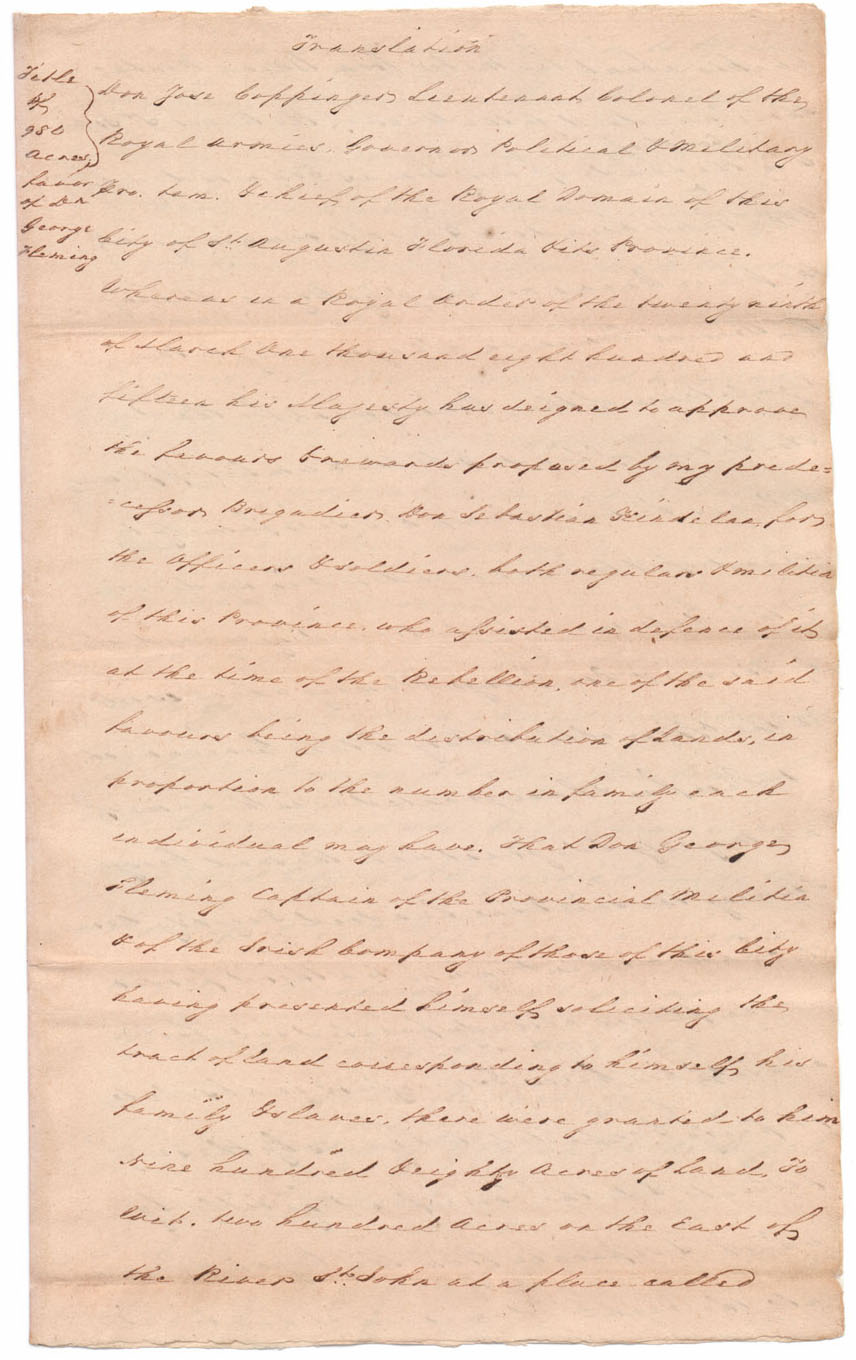 Translation
Title
of
980
Acres,
favor
of Dn
George
Fleming
Don Jose Coppinger, Lieutenant Colonel of the
Royal Armies, Governor Political & Military
Pro. tem. & chief of the Royal Domain of this
City of St. Augustin Florida & its Province.
Whereas in a Royal Order of the twenty ninth
of March One thousand eight hundred and
fifteen his Majesty has deigned to approve
the favours & rewards proposed by my prede=
=cessor Brigadier Don Sebastian Kindelan, for
the Officers & soldiers, both regulars & militia
of this Province, who assisted in defence of it
at the time of the Rebellion, one of the said
favours being the distribution of lands, in
proportion to the number in family each
individual may have. That Don George
Fleming Captain of the Provincial Militia
& of the Irish Company of those of this City
having presented himself, soliciting the
tract of land corresponding to himself, his
family & slaves, there were granted to him
Nine hundred & eighty Acres of Land, To
Wit, two hundred Acres on the East of
the River St. John at a place called